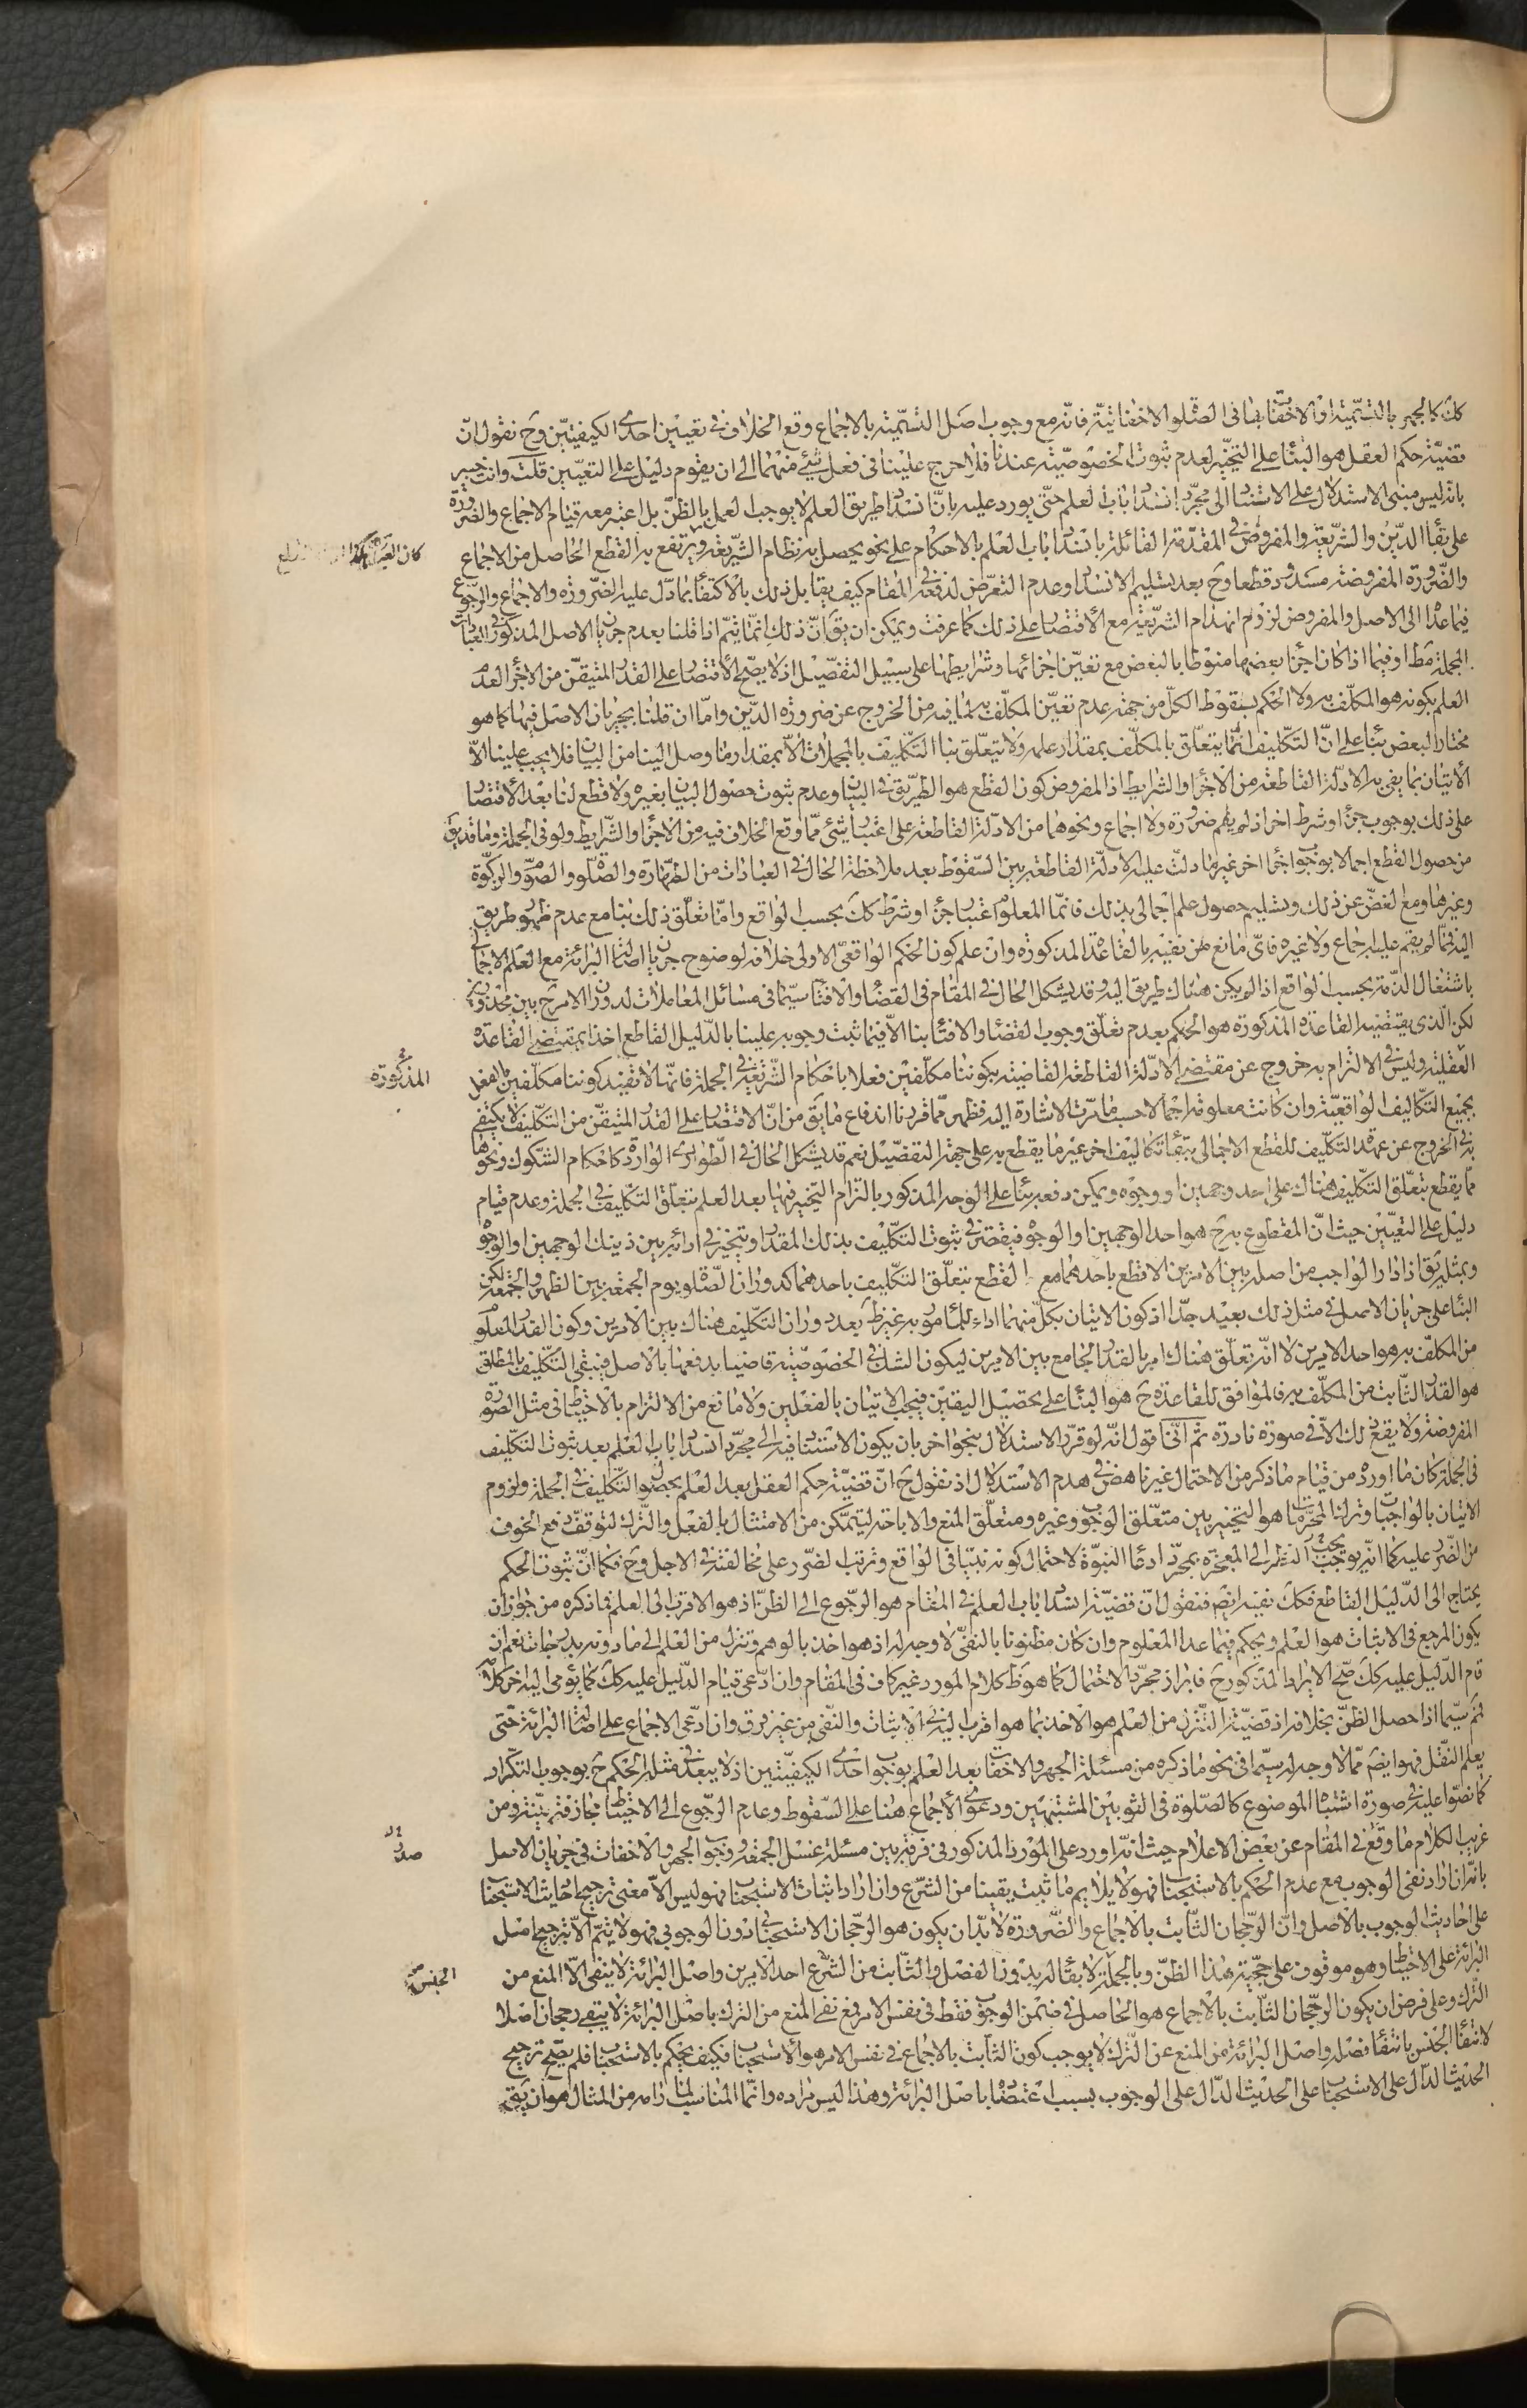 كك كالجهر بالتسمية او الاخفات بها فى الصلوة الاخفاتية فانه مع وجوب اصل التسمية بالاجماع وقع الخلاف فى تعيين احدى الكيفيتين وح نقول ان
قضية حكم العقل هو البناء على التخيير لعدم ثبوت الخصوصية عندنا فلا حرج علينا فى فعل شىء منهما الى ان يقوم دليل على التعيين قلت وانت خبير
بانه ليس مبنى الاستدلال على الاستناد الى مجرد انسداد باب العلم حتى يورد عليه بان انسداد طريق العلم لا يوجب العمل بالظن بل اعتبر معه قيام الاجماع والضرورة
على بقاء الدين والشريعة والمفروض فى المقدمة القائلة بانسداد باب العلم بالاحكام على نحو يحصل به نظام الشريعة ويرتفع به القطع الحاصل من الاجماع
والضرورة المفروضة مسدود قطعا وح بعد تسليم الانسداد وعدم التعرض لدفعه فى المقام كيف يقابل ذلك بالاكتفاء بما دل عليه الضرورة والاجماع والرجوع
فيما عدا الى الاصل والمفروض لزوم انهدام الشريعة مع الاقتصار على ذلك كما عرفت ويمكن ان يق ان ذلك انما يتم اذا قلنا بعدم جريان الاصل المذكور فى العبادات
المجملة مط او فيما اذا كان اجزاء بعضها منوطا بالبعض مع تعين اجزائها وشرايطها على سبيل التفصيل اذ لا يصح الاقتصار على القدر المتيقن من الاجزاء لعدم
العلم بكونه هو المكلف به ولا الحكم بسقوط الكل من جهة عدم تعين المكلف به لما فيه من الخروج عن ضرورة الدين واما ان قلنا بجريان الاصل فيها كما هو
مختار البعض بناء على ان التكليف انما يتعلق بالمكلف بمقدار علمه ولا يتعلق بنا التكليف بالمجملات الا بمقدار ما وصل الينا من البيان فلا يجب علينا الا
الاتيان بما يفى به الادلة القاطعة من الاجزاء والشرايط اذ المفروض كون القطع هو الطريق فى البيان وعدم ثبوت حصول البيان بغيره ولا قطع لنا بعد الاقتصار
على ذلك بوجوب جزء او شرط اخر اذ لم يقم ضرورة ولا اجماع ونحوهما من الادلة القاطعة على اعتبار شىء مما وقع الخلاف فيه من الاجزاء والشرايط ولو فى الجملة وما قد يق
من حصول القطع اجمالا بوجوب اجزاء اخر غير ما دلت عليه الادلة القاطعة بين السقوط بعد ملاحظة الحال فى العبادات من الطهارة والصلوة والصوم والزكوة
وغيرها ومع الغض عن ذلك وتسليم حصول علم اجمالى بذلك فانما المعلوم اعتبار جزء او شرط كك بحسب الواقع واما تعلق ذلك بنا مع عدم ظهور طريق
اليه فيما لم يقم عليه اجماع ولا غيره فاى مانع من نفيه بالقاعدة المذكورة وان علم كون الحكم الواقعى الاولى خلافه لوضوح جريان اصالة البرائة مع العلم الاجمالى
باشتغال الذمة بحسب الواقع اذا لم يكن هناك طريق اليه وقد يشكل الحال فى المقام فى القضاء والافتاء سيما فى مسائل المعاملات لدوران الامر ح بين محذورين
لكن الذى يقتضيه القاعدة المذكورة هو الحكم بعدم تعلق وجوب القضاء والافتاء بنا الا فيما ثبت وجوبه علينا بالدليل القاطع اخذا بمقتضى القاعدة
المذكورة
العقلية وليس فى الالتزام به خروج عن مقتضى الادلة القاطعة القاضية بكوننا مكلفين فعلا باحكام الشريعة فى الجملة فانها لا تفيد كوننا مكلفين بالفعل
بجميع التكاليف الواقعية وان كانت معلومة اجمالا حسب ما مرت الاشارة اليه فظهر مما قررنا اندفاع ما يق من ان الاقتصار على القدر المتيقن من التكليف لا يكتفى
به فى الخروج عن عهدة التكليف للقطع الاجمالى ببقاء تكاليف اخر غير ما يقطع به على جهة التفصيل نعم قد يشكل الحال فى الطوارى الواردة كاحكام الشكوك ونحوها
مما يقطع بتعلق التكليف هناك على احد وجهين او وجوه ويمكن دفعه بناء على الوجه المذكور بالتزام التخيير فيها بعد العلم بتعلق التكليف فى الجملة وعدم قيام
دليل على التعيين حيث ان المقطوع به ح هو احد الوجهين او الوجوه فيقتصر فى ثبوت التكليف بذلك المقدار ويتخير فى ادائه بين ذينك الوجهين او الوجوه
وبمثله يق اذا دار الواجب من اصله بين الامرين لا قطع باحدهما مع القطع بتعلق التكليف باحدهما كدوران الصلوة يوم الجمعة بين الظهر والجمعة لكن
البناء على جريان الاصل فى مثل ذلك بعيد جدا اذ كون الاتيان بكل منهما اداء للمامور به غير ظ بعد دوران التكليف هناك بين الامرين وكون القدر المعلوم
من المكلف به هو احد الامرين لا انه تعلق هناك امر بالقدر الجامع بين الامرين ليكون الشك فى الخصوصية قاضيا بدفعها بالاصل فيبقى التكليف بالمطلق
هو القدر الثابت من المكلف به فالموافق للقاعدة ح هو البناء على تحصيل اليقين فيجب الاتيان بالفعلين ولا مانع من الالتزام بالاحتياط فى مثل الصورة
المفروضة ولا يقع ذلك الا فى صورة نادرة ثم اننى اقول انه لو قرر الاستدلال بنحو اخر بان يكون الاستناد فيه الى مجرد انسداد باب العلم بعد ثبوت التكليف
فى الجملة كان ما اورده من قيام ما ذكر من الاحتمال غير ناهض فى هدم الاستدلال اذ نقول ح ان قضية حكم العقل بعد العلم بحصول التكليف فى الجملة ولزوم
الاتيان بالواجبات وترك المحرمات ما هو التخيير بين متعلق الوجوب وغيره ومتعلق المنع والاباحة ليتمكن من الامتثال بالفعل والترك لتوقف دفع الخوف
من الضرر عليه كما انه يوجب النظر الى المعجزة بمجرد ادعاء النبوة لاحتمال كونه نبيا فى الواقع وترتب الضرر على مخالفته فى الاجل وح فكما ان ثبوت الحكم
يحتاج الى الدليل القاطع فكك نفيه ايضا فنقول ان قضية انسداد باب العلم فى المقام هو الرجوع الى الظن اذ هو الاقرب الى العلم فما ذكره من جواز ان
يكون المرجع فى الاثبات هو العلم ويحكم فيما عدا المعلوم وان كان مظنونا بالنفى لا وجه له اذ هو اخذ بالوهم وتنزل من العلم الى ما دونه بدرجات نعم ان
قام الدليل عليه كك صح الايراد المذكور ح فابراز مجرد الاحتمال كما هو ظ كلام المورد غير كاف فى المقام وان ادعى قيام الدليل عليه كك كما يؤمى اليه اخر كلامه
ثم سيما اذا حصل الظن بخلافه اذ قضية التنزل من العلم هو الاخذ بما هو اقرب اليه فى الاثبات والنفى من غير فرق وان ادعى الاجماع على اصالة البرائة حتى
يعلم النقل فهو ايضا مما لا وجه له سيما فى نحو ما ذكره من مسئلة الجهر والاخفات بعد العلم بوجوب احدى الكيفيتين اذ لا يبعد فى مثله الحكم ح بوجوب التكرار
كما نصوا عليه فى صورة اشتباه الموضوع كالصلوة فى الثوبين المشتبهين ودعوى الاجماع هنا على السقوط وعدم الرجوع الى الاحتياط مجازفة بينة ومن
غريب الكلام ما وقع فى المقام عن بعض الاعلام حيث انه اورد على المورد المذكور فى فرقه بين مسئلة غسل الجمعة ووجوب الجهر والاخفات فى جريان الاصل
بانه ان اراد نفى الوجوب مع عدم الحكم بالاستحباب فهو لا يلايم ما ثبت يقينا من الشرع وان اراد اثبات الاستحباب فهو ليس الا معنى ترجيح احاديث الاستحباب
على احاديث الوجوب بالاصل وان الرجحان الثابت بالاجماع والضرورة لا بد ان يكون هو الرجحان الاستحبابى دون الوجوبى فهو لا يتم الا بترجيح اصل
البرائة على الاحتياط وهو موقوف على حجية هذا الظن وبالجملة لا بقاء له بدون الفصل والثابت من الشرع احد الامرين واصل البرائة لا ينفى الا المنع من
الجنس
الترك وعلى فرض ان يكون الرجحان الثابت بالاجماع هو الحاصل فى ضمن الوجوب فقط فى نفس الامر فمع نفى المنع من الترك باصل البرائة لا يبقى رجحان اصلا
لانتفاء الجنس بانتفاء فصله واصل البرائة من المنع عن الترك لا يوجب كون الثابت بالاجماع فى نفس الامر هو الاستحباب فكيف يحكم بالاستحباب فلم يصح ترجيح
الحديث الدال على الاستحباب على الحديث الدال على الوجوب بسبب اعتضاده باصل البرائة وهذا ليس مراده وانما المناسب لما رامه من المثال هو ان يق